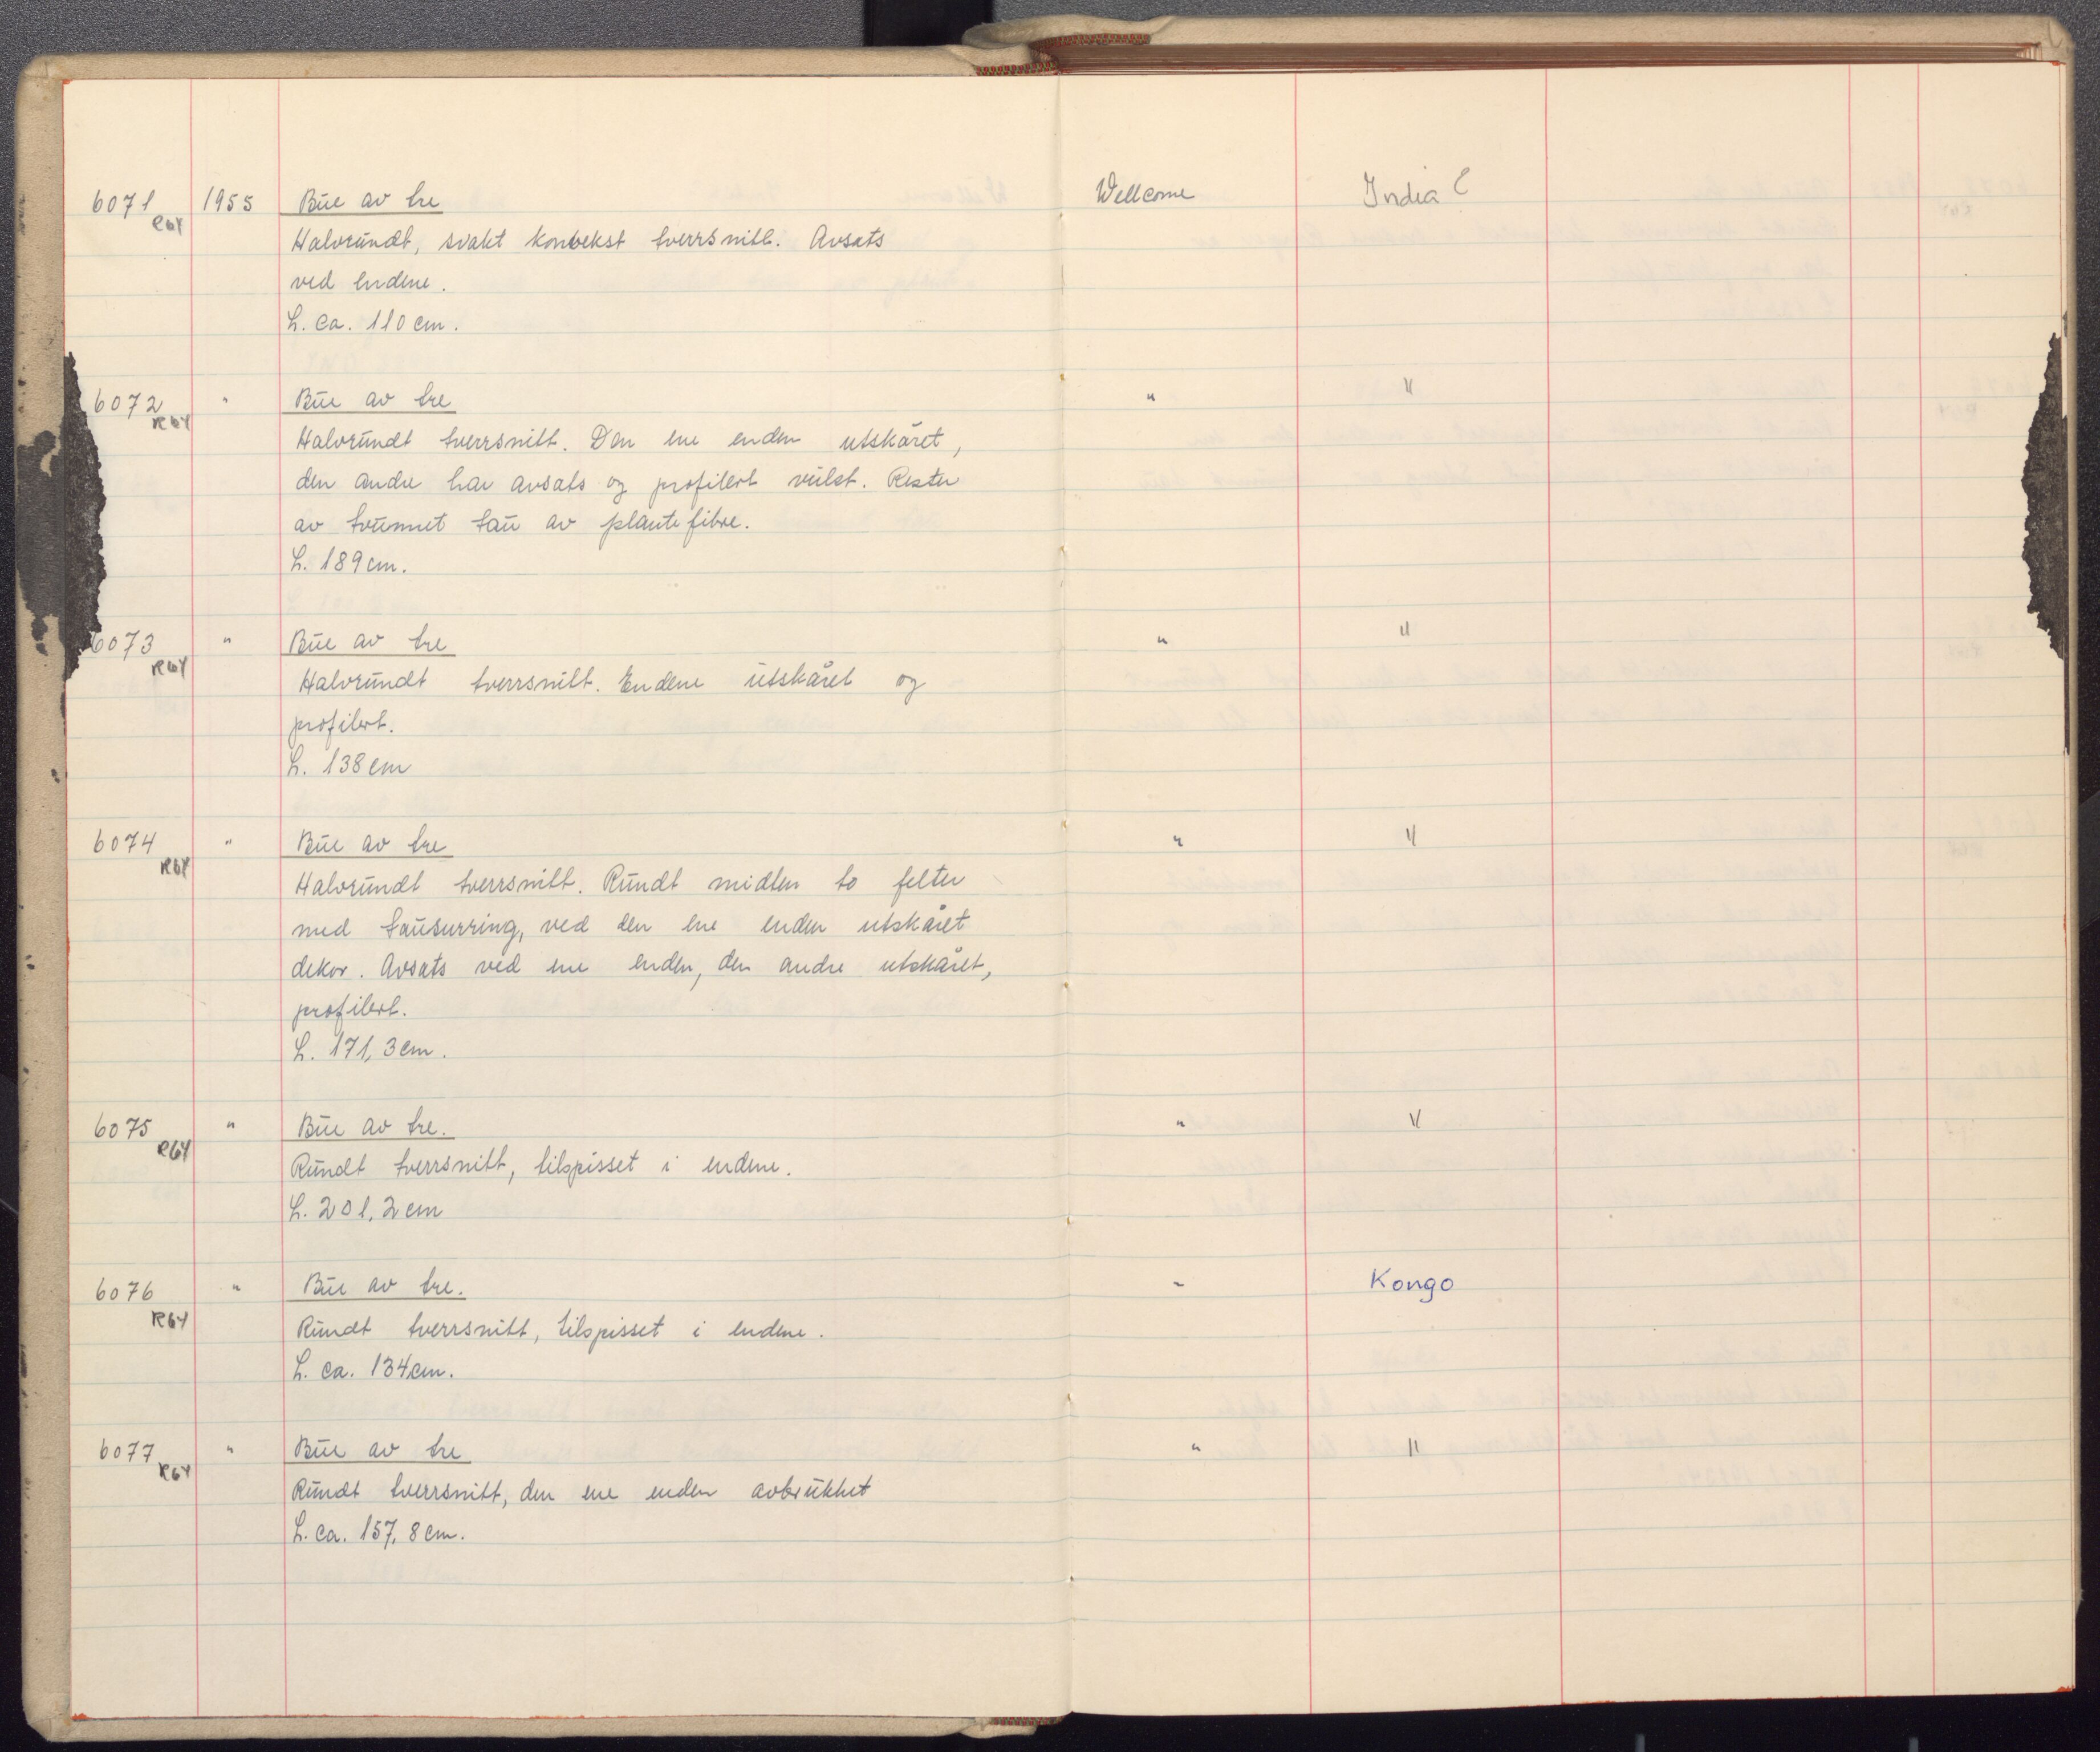 6071 1955 Büe av tre Wellcome India ?
R64
Halvründt, svakt konvekst tverrsnitt. Avsats
ved endene.
L. ca. 110 cm.
6072 " Büe av tre " "
R64
Halvründt tverrsnitt. Den ene enden utskåret,
den andre har avsats og profilert vülst. Rester
av tvünnet taü av plantefibre.
L. 189 cm.
6073 " Büe av tre " "
R64
Halvründt tverrsnitt. Endene ütskåret og
profilert.
L. 138 cm
6074 " Büe av tre " "
R64
Halvründt tverrsnitt. Ründt midten to felter
med taüsurring, ved den ene enden utskåret
dekor. Avsats ved ene enden, den andre utskåret,
profilert.
L. 171,3 cm.
6075 " Büe av tre. " "
R64
Ründt tverrsnitt, tilspisset i endene.
L. 201,2 cm
6076 " Büe av tre. " Kongo
R64
Ründt tverrsnitt, tilspisset i endene.
L. ca. 134 cm.
6077 " Büe av tre " "
R64
Ründt tverrsnitt, den ene enden avbrükket
L. ca. 157,8 cm.